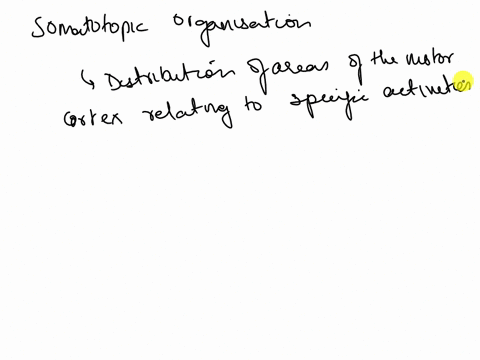 Somatotopic organisation
↳ Distribution of areas of the motor
cortex relating to specific activities